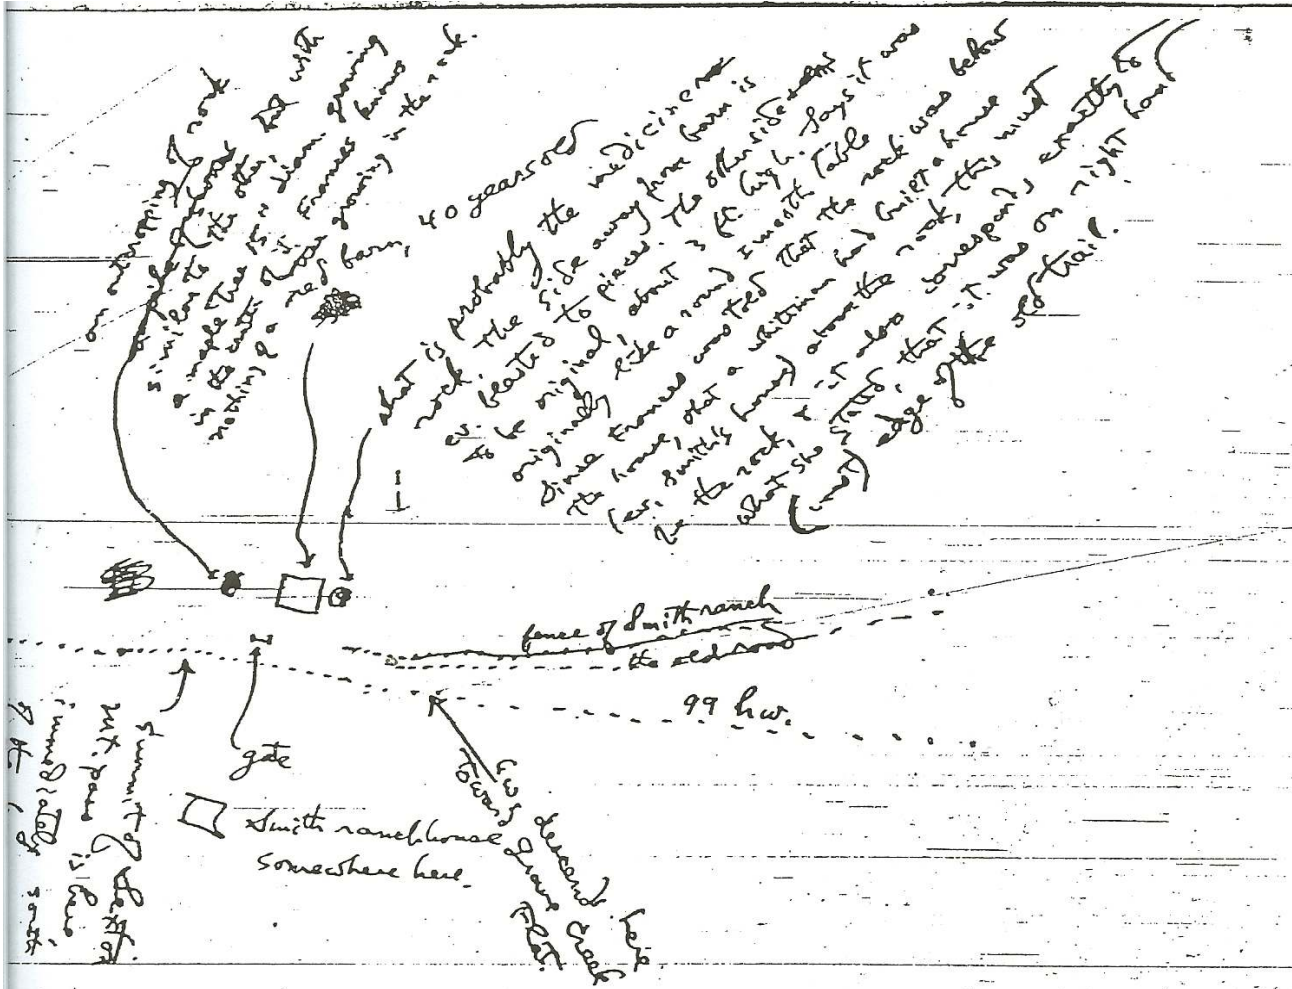 an outcropping of rock
similar to the other, but with
a maple tree ins. diam. growing
in the earth. frances knows
nothing of a growing in the rock.
red barn, 40 years old
what is probably the medicine
rock. The side away from barn is
ev. blasted to pieces. The other side
to be original, about 3 ft. high. Says it was
originally like a round 1 month table
Since frances was told that the rock was below
the house, that a whiteman had built a house
(ev. Smith's house) above the rock, this must
be the rock, & it also corresponds exactly to
what she stated, that it was on right hand
(west) edge of the old trail.
fence of Smith ranch
the old road
99 hw.
gate
Smith ranchhouse
somewhere here.
hwy descends here
toward Grave Creek
Flat.
Summit of Sexton
mt. pass is here,
immediately south
of the